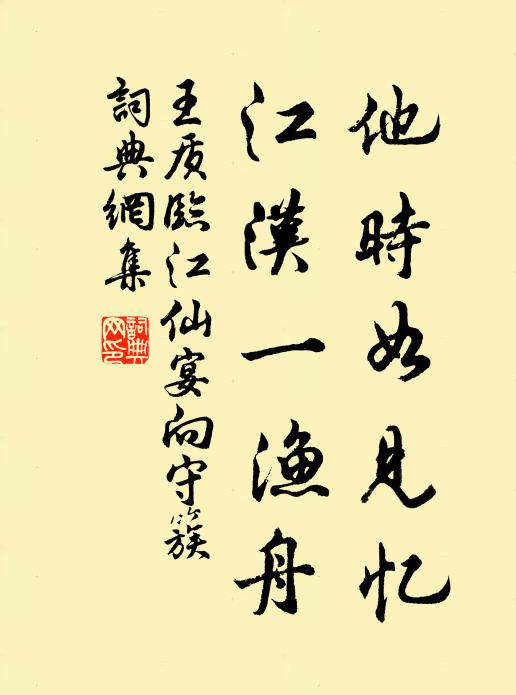 他時如見忆
江漢一漁舟
王质臨江仙宴向守簇
詞典網集
詞典网印